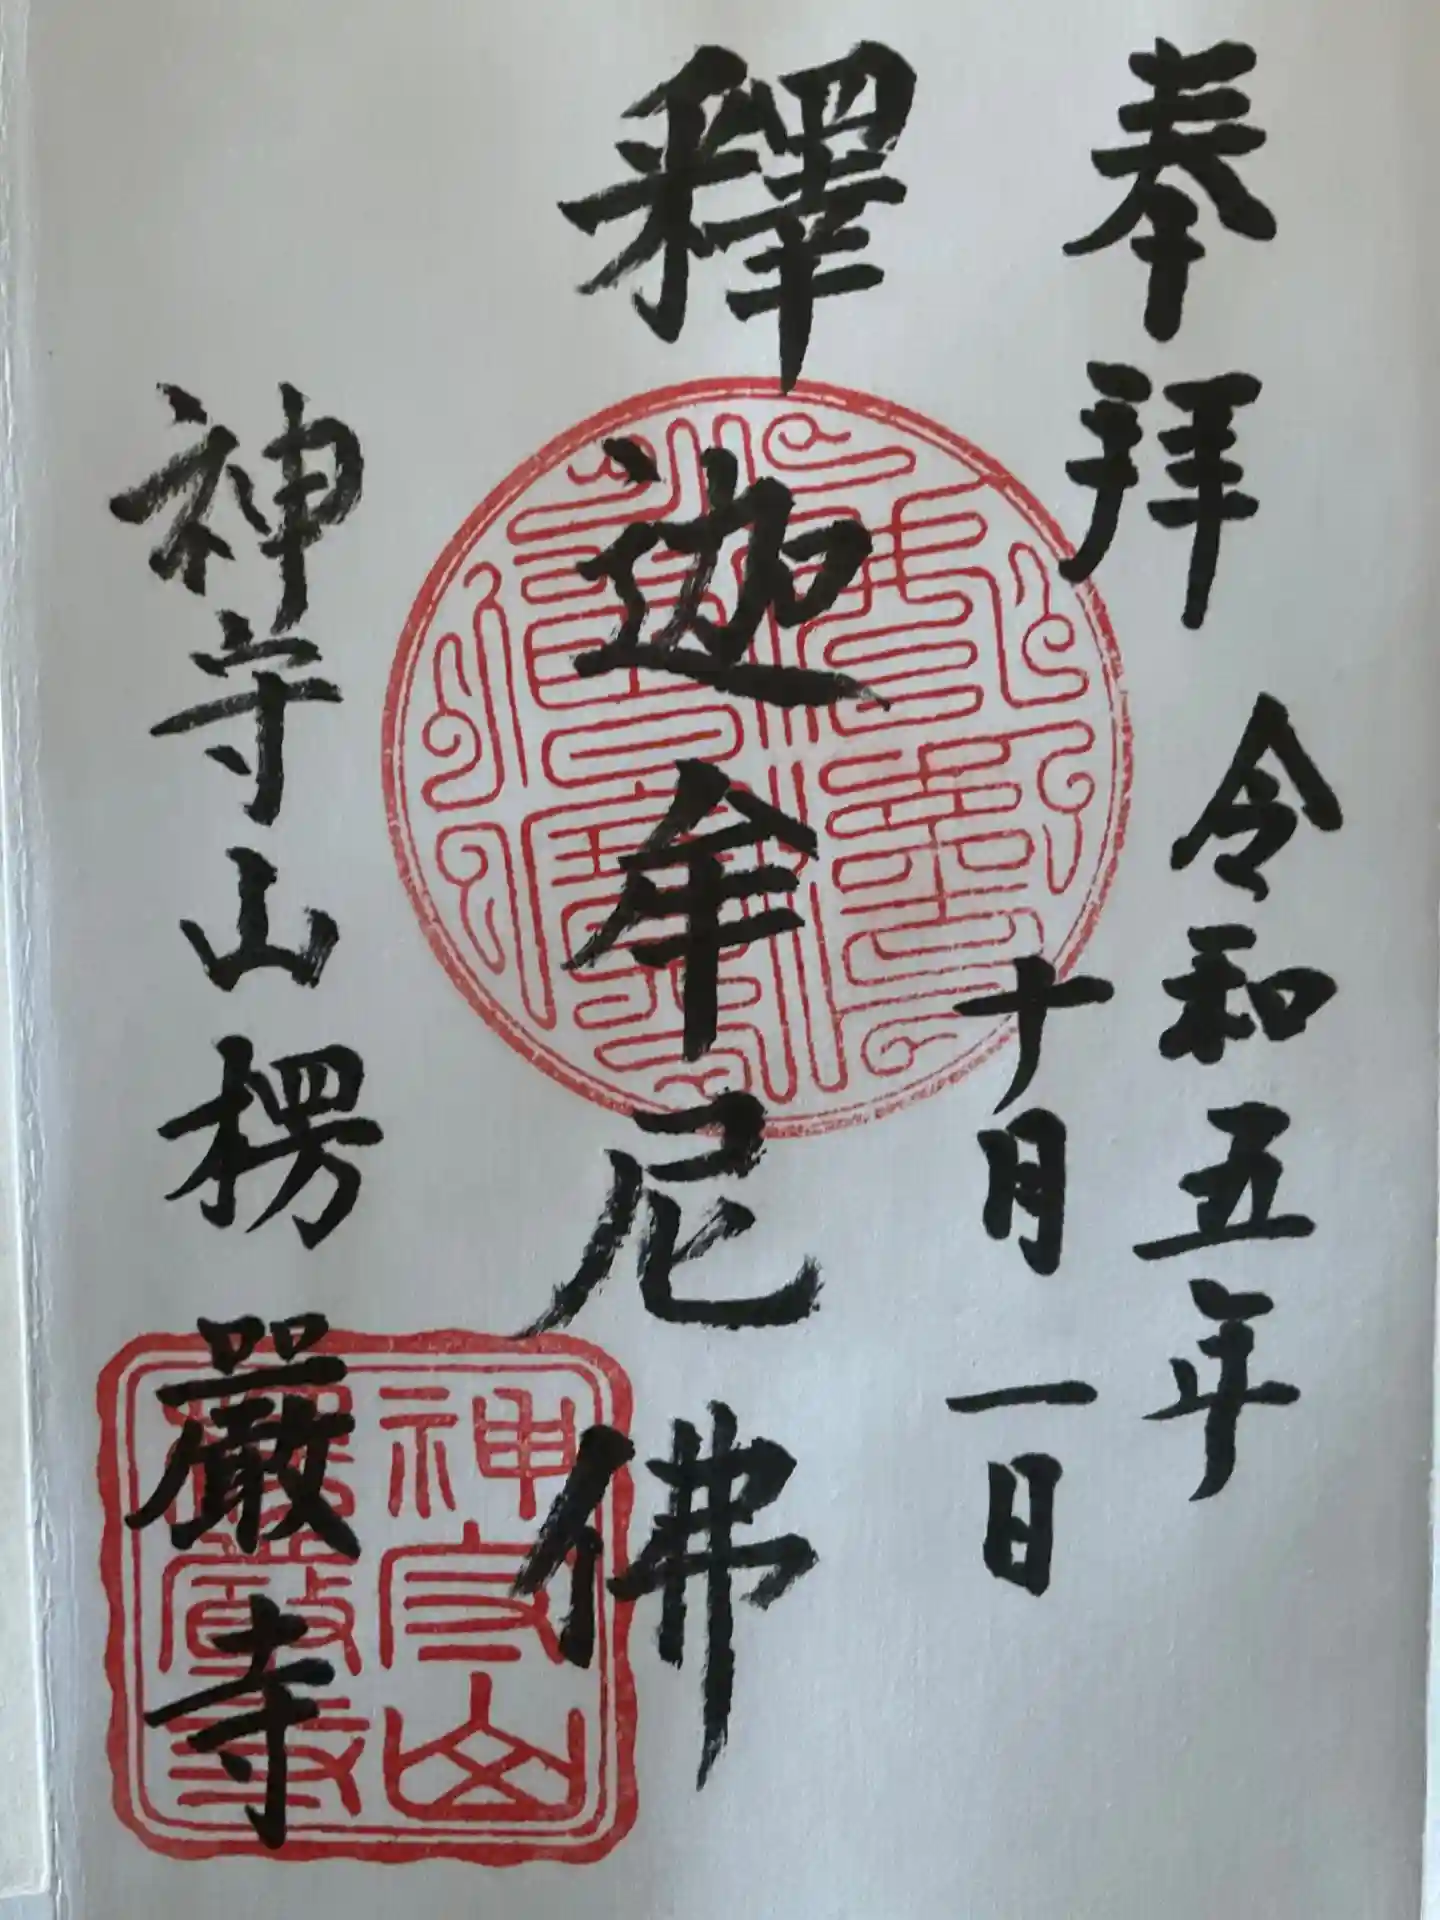 奉拜
令和五年
十月一日
釋迦牟尼佛
神守山楞嚴寺
神守山
楞嚴寺